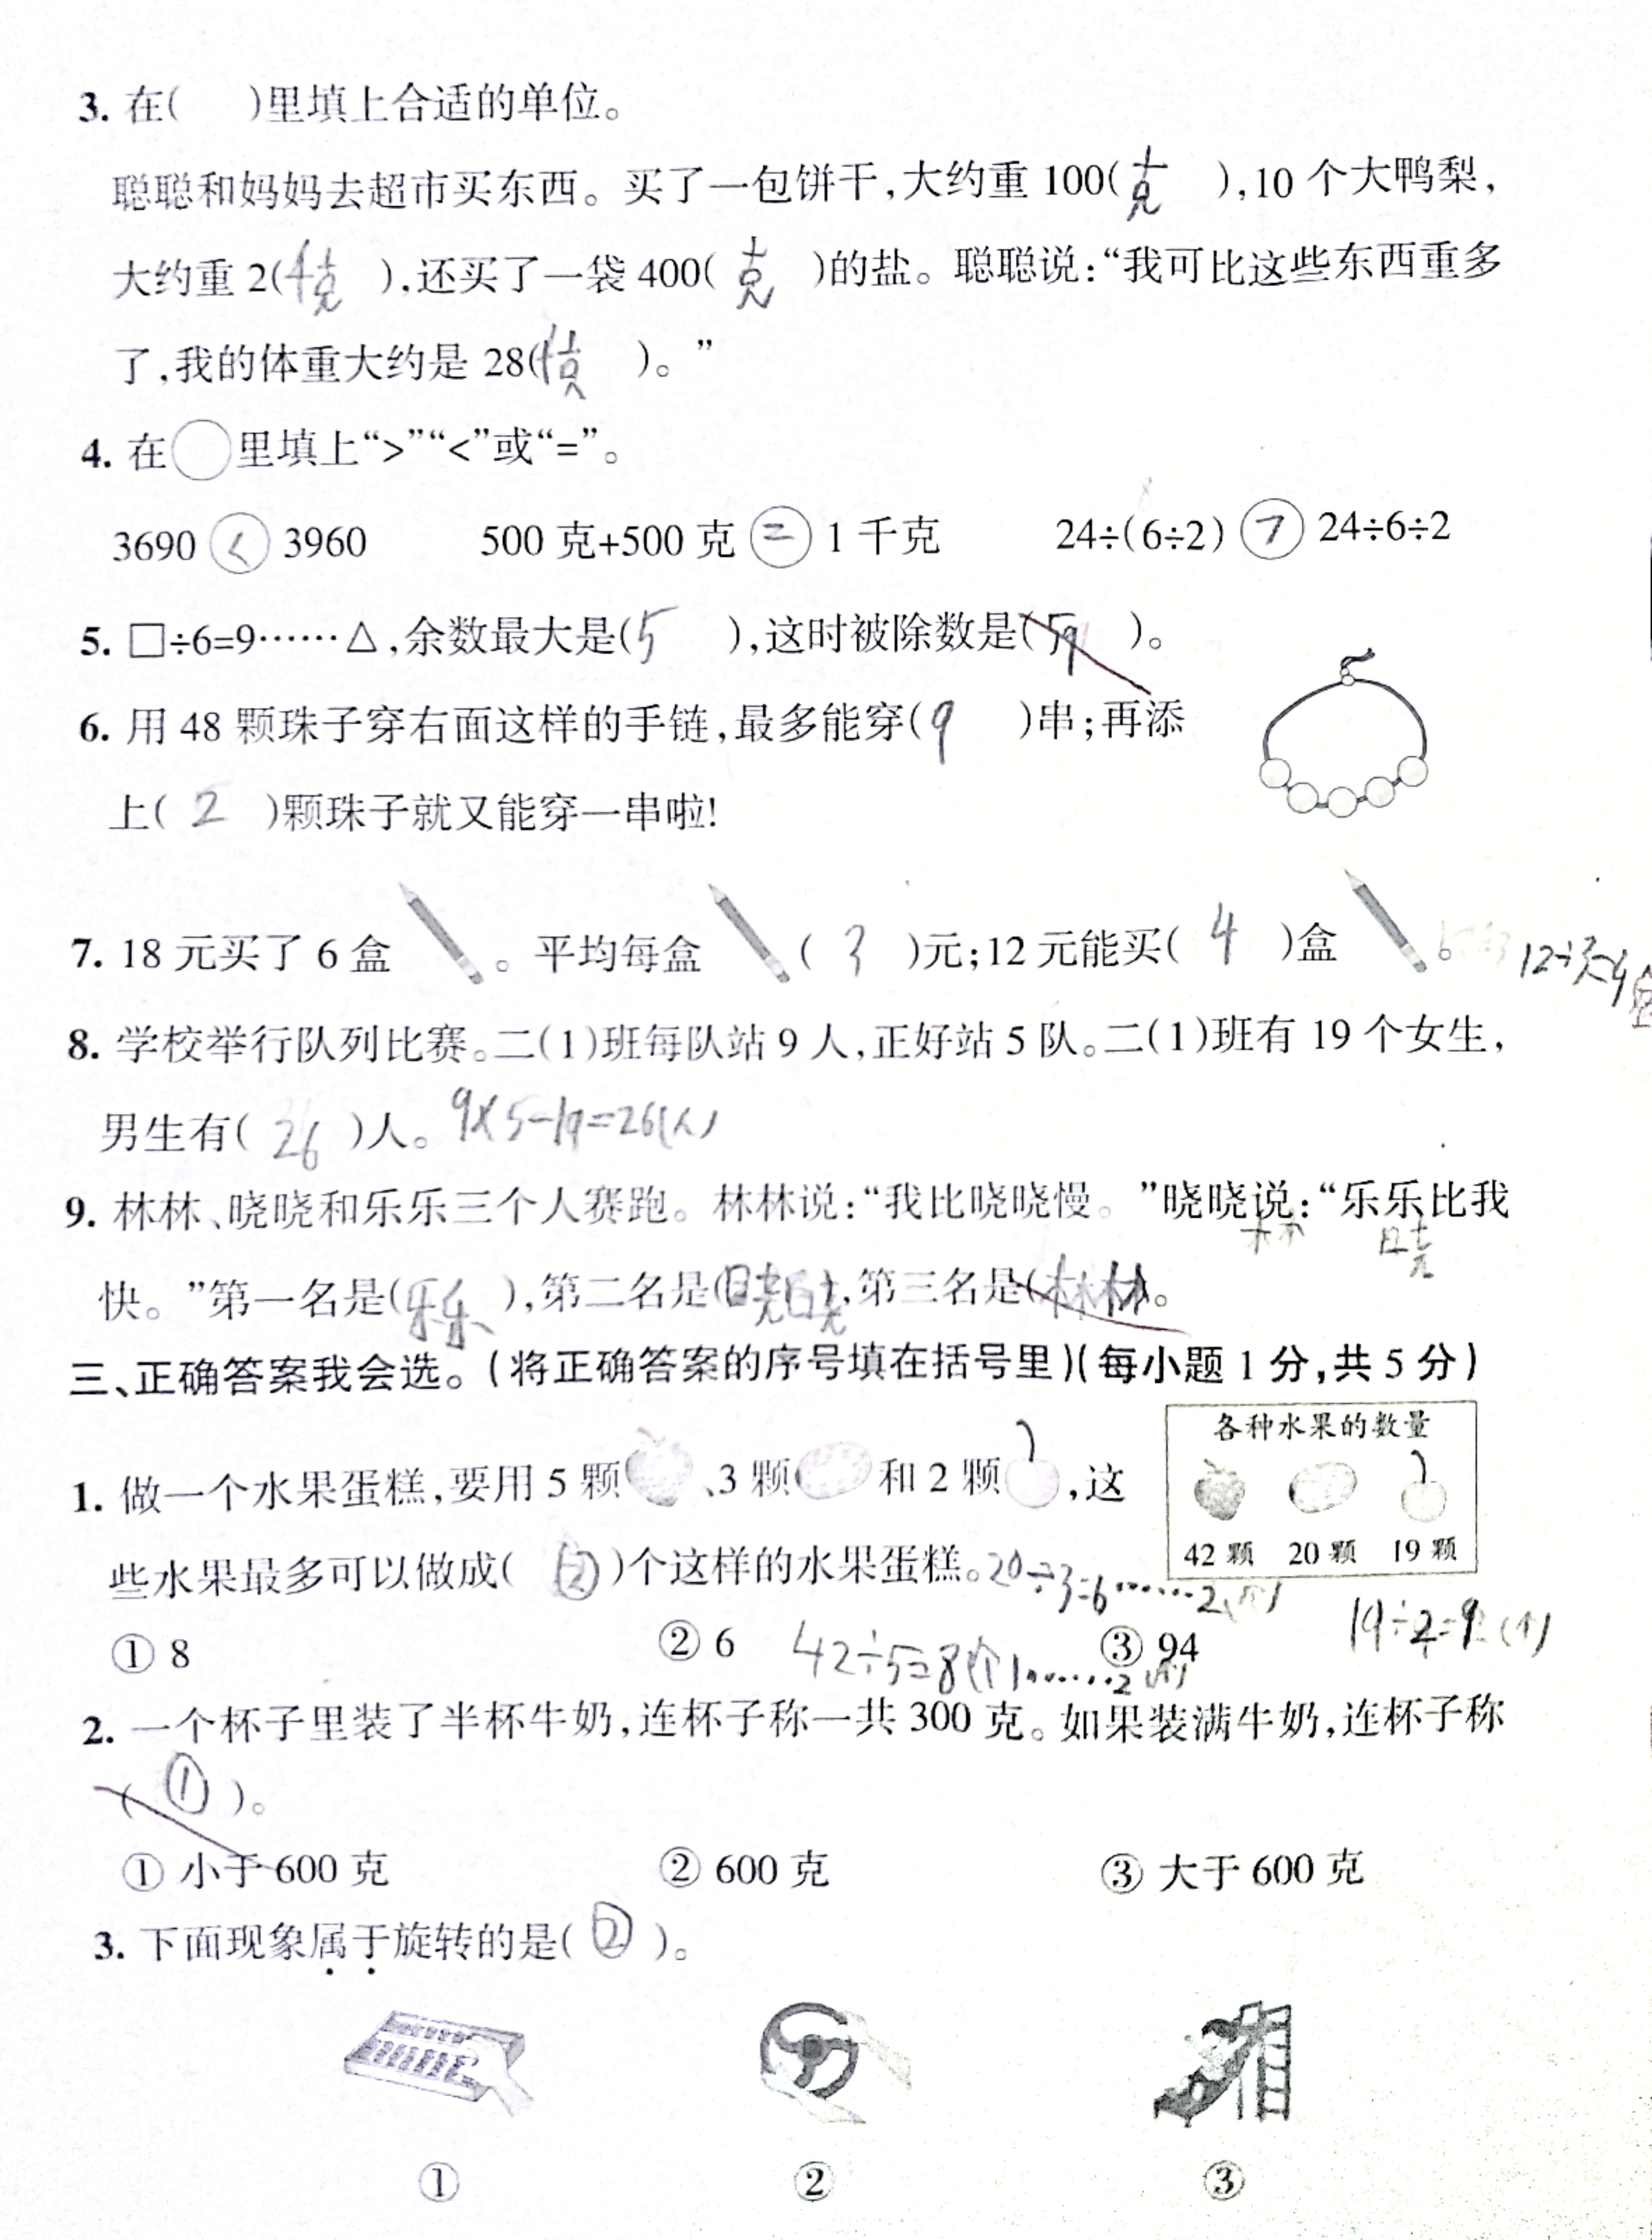 3. 在( )里填上合适的单位。
聪聪和妈妈去超市买东西。买了一包饼干,大约重 100(克 ),10 个大鸭梨,
大约重 2(千克 ),还买了一袋 400( 克 )的盐。聪聪说:“我可比这些东西重多
了,我的体重大约是 28(千克 )。”
4. 在○里填上“>”“<”或“=”。
3690 < 3960 500 克+500 克 = 1 千克 24÷(6÷2) > 24÷6÷2
5. □÷6=9……△,余数最大是(5 ),这时被除数是(59 )。
6. 用 48 颗珠子穿右面这样的手链,最多能穿(9 )串;再添
上( 2 )颗珠子就又能穿一串啦!
7. 18 元买了 6 盒 。平均每盒 ( 3 )元;12 元能买( 4 )盒 。 12÷3=4盒
8. 学校举行队列比赛。二(1)班每队站 9 人,正好站 5 队。二(1)班有 19 个女生,
男生有( 26 )人。 9×5-19=26(人)
9. 林林、晓晓和乐乐三个人赛跑。林林说:“我比晓晓慢。”晓晓说:“乐乐比我
林 晓
快。”第一名是(乐乐 ),第二名是(晓晓),第三名是(林林)。
三、正确答案我会选。(将正确答案的序号填在括号里)(每小题 1 分,共 5 分)
各种水果的数量
1. 做一个水果蛋糕,要用 5 颗 、3 颗 和 2 颗 ,这
42 颗 20 颗 19 颗
些水果最多可以做成( ② )个这样的水果蛋糕。20÷3=6……2(个)
① 8 ② 6 42÷5=8(个)……2(个) ③ 94 19÷2=9(个)
2. 一个杯子里装了半杯牛奶,连杯子称一共 300 克。如果装满牛奶,连杯子称
( ① )。
① 小于 600 克 ② 600 克 ③ 大于 600 克
3. 下面现象属于旋转的是( ② )。
① ② ③